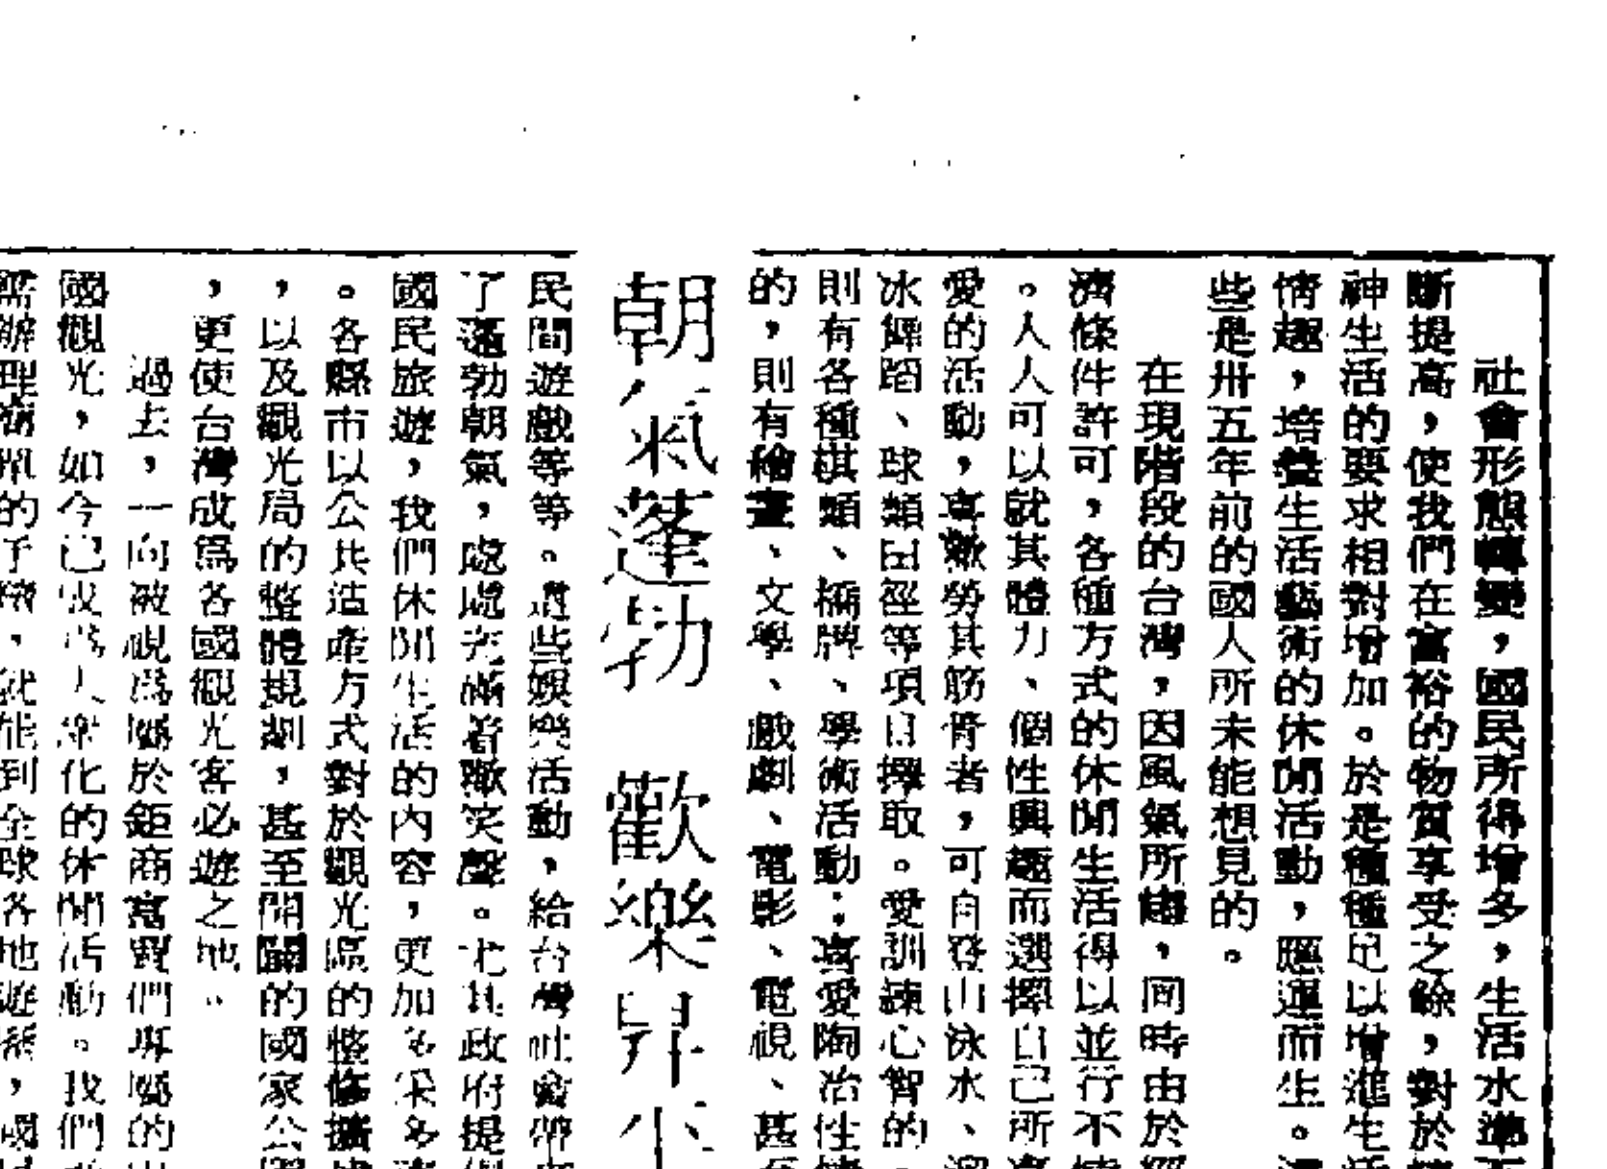 社會形態轉變，國民所得增多，生活水準
斷提高，使我們在富裕的物質享受之餘，對於
神生活的要求相對增加。於是種種足以增進生活
情趣，培養生活藝術的休閒活動，應運而生。
些是卅五年前的國人所未能想見的。
在現階段的台灣，因風氣所趨，同時由於
濟條件許可，各種方式的休閒生活得以並行不
。人人可以就其體力、個性興趣而選擇自己所
愛的活動，喜歡勞其筋骨者，可自登山泳水、
冰舞蹈、球類田徑等項目擇取。愛訓練心智的，
則有各種棋類、橋牌、學術活動；喜愛陶冶性
的，則有繪畫、文學、戲劇、電影、電視、甚
朝氣蓬勃 歡樂昇
民間遊戲等等。這些娛樂活動，給台灣社會帶
了蓬勃朝氣，處處充滿著歡笑聲。尤其政府提
國民旅遊，我們休閒生活的內容，更加多采多
。各縣市以公共造產方式對於觀光區的整修擴
，以及觀光局的整體規劃，甚至開闢的國家公
，更使台灣成為各國觀光客必遊之地。
過去，一向被視為屬於鉅商富賈們專屬的
國觀光，如今已成為大眾化的休閒活動。我們
需辦理簡單的手續，就能到全球各地遊